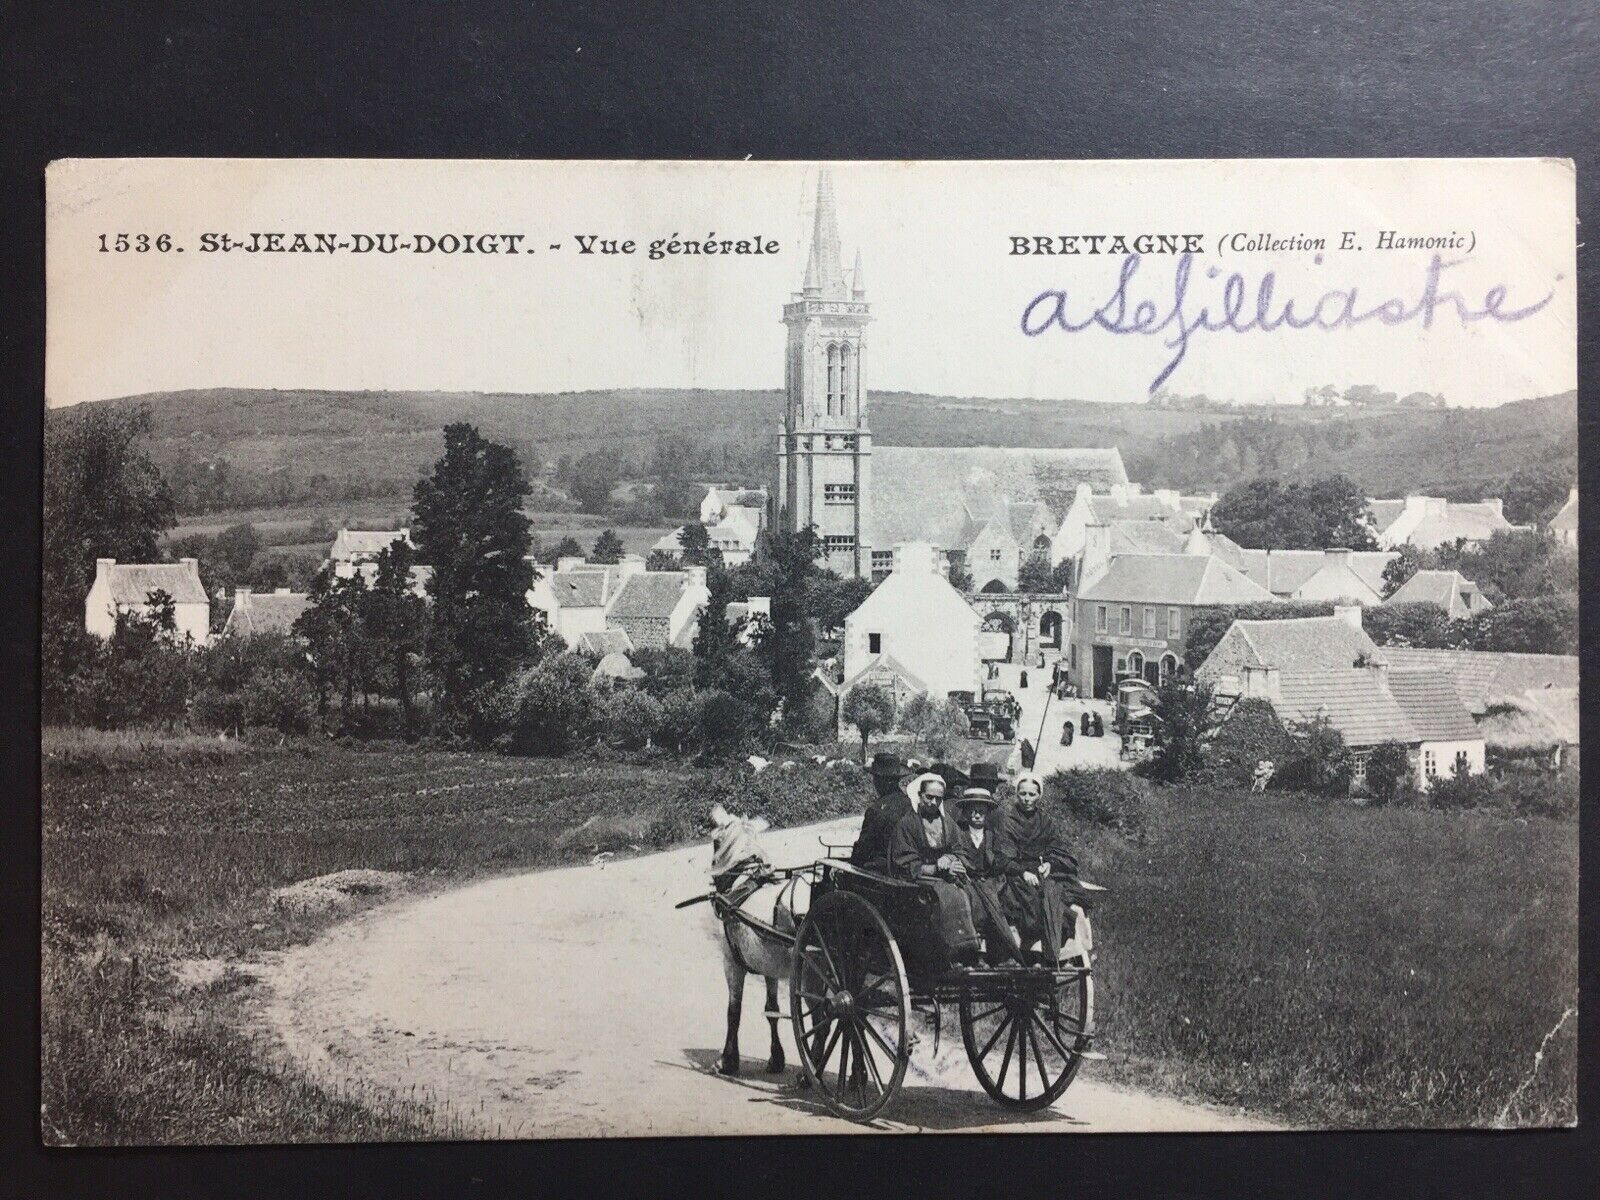 1536. St-JEAN-DU-DOIGT. - Vue générale
BRETAGNE (Collection E. Hamonic)
a Lefilliastre